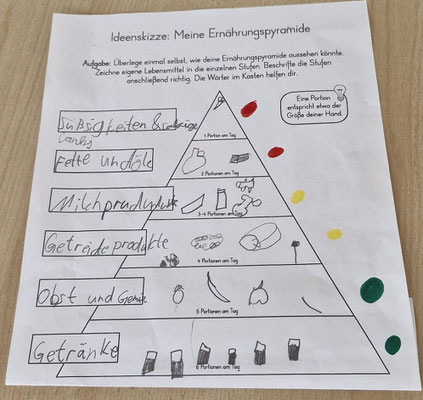 Ideenskizze: Meine Ernährungspyramide
Aufgabe: Überlege einmal selbst, wie deine Ernährungspyramide aussehen könnte.
Zeichne eigene Lebensmittel in die einzelnen Stufen. Beschrifte die Stufen
anschließend richtig. Die Wörter im Kasten helfen dir.
Eine Portion
entspricht etwa der
Größe deiner Hand.
Süßigkeiten &
1 Portion am Tag
Fette und Öle
2 Portionen am Tag
Milchprodukte
3-4 Portionen am Tag
Getreideprodukte
4 Portionen am Tag
Obst und Gemüse
5 Portionen am Tag
Getränke
6 Portionen am Tag